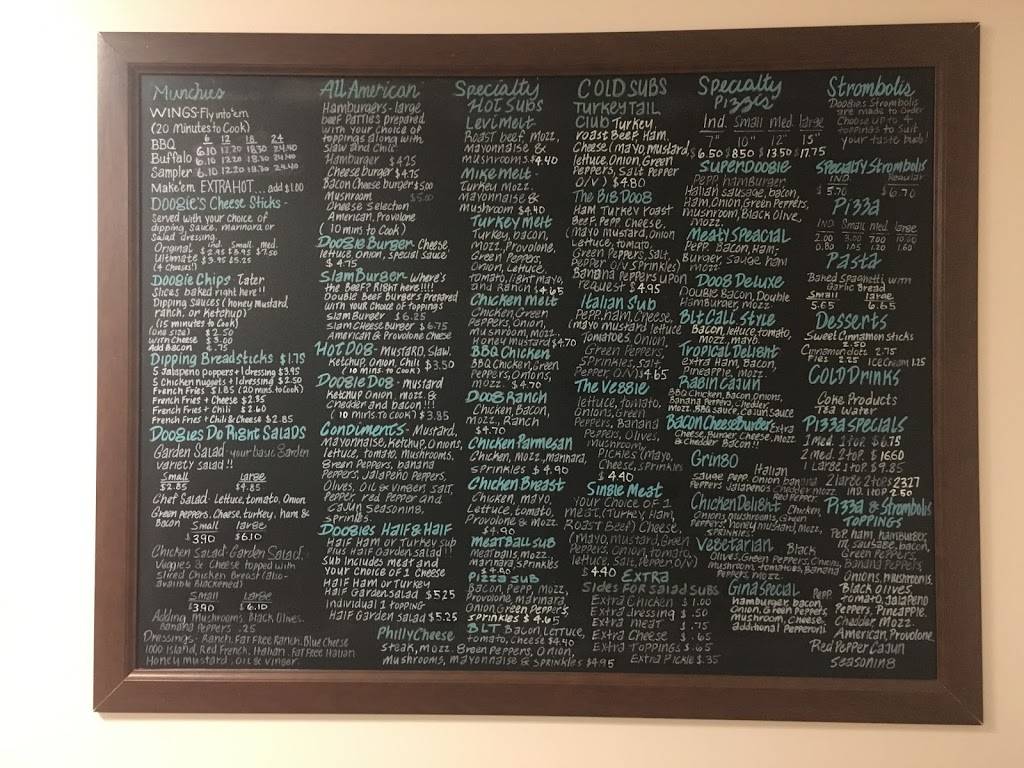 Munchies
WINGS-Fly into'em
(20 Minutes to Cook)
6 12 18 24
BBQ 6.10 12.20 18.30 24.40
Buffalo 6.10 12.20 18.30 24.40
Sampler 6.10 12.20 18.30 24.40
Make'em EXTRA HOT... add $1.00
DOOGIE'S Cheese Sticks-
Served with your choice of
dipping sauce, marinara or
Salad dressing
Ind. Small med.
Original $2.95 $5.95 $7.50
Ultimate $3.95 $5.25
(4 Cheeses!)
Doogie Chips Tater
Slices baked right here!!
Dipping Sauces (honey mustard,
ranch, or ketchup)
(15 minutes to Cook)
(one size) $2.50
with Cheese $3.00
Add Bacon $.75
Dipping Breadsticks $1.75
5 Jalapeno poppers + 1 dressing $3.95
5 Chicken nuggets + 1 dressing $2.50
French Fries $1.85 (20 mins. to Cook)
French Fries + Cheese $2.35
French Fries + Chili $2.60
French Fries + Chili & Cheese $2.85
Doogies Do Right Salads
Garden Salad your basic Garden
variety salad!!
Small Large
$2.85 $4.85
Chef Salad Lettuce, tomato, Onion
Green peppers, Cheese, turkey, ham &
Bacon Small large
$390 $6.10
Chicken Salad Garden Salad.
Veggies & Cheese topped with
sliced Chicken Breast (also
available Blackened)
Small Large
$390 $6.10
Adding Mushrooms, Black Olives,
Banana Peppers .25
Dressings- Ranch, Fat Free Ranch, Blue Cheese
1000 Island, Red French, Italian, Fat Free Italian
Honey mustard, oil & vinger.
All American
Hamburgers- large
beef Patties prepared
with your choice of
toppings along with
slaw and Chili
Hamburger $4.25
Cheese burger $4.75
Bacon Cheese burger $5.00
Mushroom $5.00
Cheese Selection
American, Provolone
(10 mins to Cook)
Doogie Burger- Cheese
lettuce onion, special sauce
$4.75
Slam Burger- Where's
the Beef? Right here!!!!
Double Beef Burgers Prepared
with your choice of toppings
Slam Burger $6.25
Slam Cheese Burger $6.75
American & Provolone Cheese
Hot Dog- Mustard, Slaw,
Ketchup, Onion, Chili $3.50
(10 mins. to Cook)
Doogie Dog- mustard
Ketchup Onion, mozz &
Chedder and bacon!!!
(10 mins. to Cook) $3.85
Condiments- Mustard,
Mayonnaise, Ketchup, Onions,
lettuce, tomato, mushrooms,
Green Peppers, banana
Peppers, Jalapeno Peppers,
Olives, oil & vinger, Salt,
Pepper, red Pepper and
Cajun Seasoning,
Sprinkles.
Doogies Half & Half
Half Ham or Turkey sub
plus Half Garden Salad!!
Sub includes meat and
Your Choice of 1 Cheese
Half Ham or Turkey
Half Garden Salad $5.25
Individual 1 topping
Half Garden Salad $5.25
Philly Cheese
Steak, Mozz. Green Peppers, Onion,
mushrooms, mayonnaise & sprinkles $4.95
Specialty
Hot Subs
Levi melt-
Roast beef, mozz,
mayonnaise &
mushrooms $4.40
Mike melt-
Turkey, mozz.
Mayonnaise &
mushroom $4.40
Turkey Melt
Turkey, bacon,
Mozz, Provolone,
Green Peppers,
Onion, Lettuce,
tomato, light mayo,
and Ranch $4.65
Chicken melt
Chicken, Green
Peppers, Onion,
mushroom, mozz.
Honey mustard $4.70
BBQ Chicken
BBQ Chicken, Green
Peppers, Onions,
mozz. $4.70
Doog Ranch
Chicken, Bacon,
Mozz., Ranch
$4.70
Chicken Parmesan
Chicken, Mozz, marinara,
sprinkles $4.90
Chicken Breast
Chicken, mayo,
Lettuce, tomato,
Provolone & mozz
$4.90
Meatball sub
Meatballs, Mozz.
marinara, sprinkles
$4.90
Pizza sub
Bacon, Pepp, mozz,
Provolone, marinara,
Onion Green Peppers,
sprinkles $4.65
BLT Bacon, Lettuce,
tomato, Cheese $4.40
COLD SUBS
Turkey Tail
Club Turkey,
Roast Beef, Ham,
Cheese (mayo, mustard,
lettuce, Onion, Green
Peppers, Salt, Pepper
O/V) $4.80
The Big Doog
Ham, Turkey, Roast
Beef, Pepp, Cheese,
(mayo, mustard, Onion
Lettuce, tomato,
Green Peppers, Salt,
Pepper O/V sprinkles)
Banana Peppers upon
request $4.95
Italian Sub
Pepp, ham, Cheese,
(mayo mustard lettuce
Tomatoes, Onion,
Green Peppers,
Sprinkles, Salt,
Pepper O/V) $4.65
The Veggie
lettuce, tomato,
Onions, Green
Peppers, Banana
Peppers, Olives,
mushroom,
Pickles (mayo,
Cheese, sprinkles
$4.40
Single Meat
Your Choice of 1
meat, (Turkey, Ham,
Roast Beef) Cheese,
(mayo, mustard, Green
Peppers, Onion, tomato,
lettuce, Salt, Pepper, O/V)
$4.40
Extra
Sides for Salad Subs
Extra Chicken $1.00
Extra Dressing $.50
Extra meat $.75
Extra Cheese $.65
Extra Toppings $.65
Extra Pickle $.35
Specialty
Pizzas
Ind. Small med. large
7" 10" 12" 15"
$6.50 $8.50 $13.50 $17.75
Super Doogie
Pepp, hamburger,
Italian sausage, bacon,
Ham, Onion, Green Peppers,
mushroom, Black Olive,
Mozz.
Meaty Speacial
Pepp, Bacon, Ham,
Burger, Sauge, ham
mozz.
Doog Deluxe
Double Bacon, Double
Hamburger, Mozz.
BLT Cali Style
Bacon, lettuce, tomato,
Mozz. mayo
Tropical Delight
Extra Ham, Bacon,
Pineapple, mozz.
Ragin Cajun
BBQ Chicken, Bacon, onions,
Banana Peppers, Chedder,
Mozz. BBQ Sauce, Cajun Sauce
Bacon Cheeseburger Extra
Cheese, Burger, Cheese, Mozz
& Chedder Bacon!!
Gringo Italian
Sauge, Pepp, Onion, banana
Peppers, Jalapenos, Chedder, Mozz
Red Pepper
Chicken Delight Chicken,
Onions, mushrooms, Green
Peppers, honey mustard, Mozz,
Vegetarian Black
Olives, Green Peppers, Onions,
mushroom, tomatoes, Banana
Peppers, mozz.
Gina Special Pepp
hamburger, bacon,
Onion, Green Peppers,
mushroom, Cheese,
additional Pepperoni
Strombolis
Doogies Strombolis
are made to Order
Choose up to 4
toppings to suit
your taste buds!
Specialty Strombolis
Ind. Regular
$5.70 $6.70
Pizza
IND. Small med. large
2.00 3.00 7.00 10.00
0.8 1.05 1.20 1.60
Pasta
Baked Spaghetti with
Garlic Bread
Small large
5.65 6.65
Desserts
Sweet Cinnamon sticks
2.50
Cinnamon dots 2.75
Pies 2.25 Ice Cream 1.25
COLD DRINKS
Coke Products
Tea Water
Pizza Specials
1 med. 1 top. $6.75
2 med. 2 top. $16.60
1 Large 1 top $9.85
2 large 2 tops 23.27
IND. 1 top 2.50
Pizza & Strombolis
TOPPINGS
Pepp, ham, hamburger,
IT. sausage, bacon,
Green Peppers,
Banana Peppers,
Onions, mushrooms,
Black Olives,
tomato, Jalapeno
Peppers, Pineapple,
Chedder, Mozz
American, Provolone,
Red Pepper Cajun
Seasoning